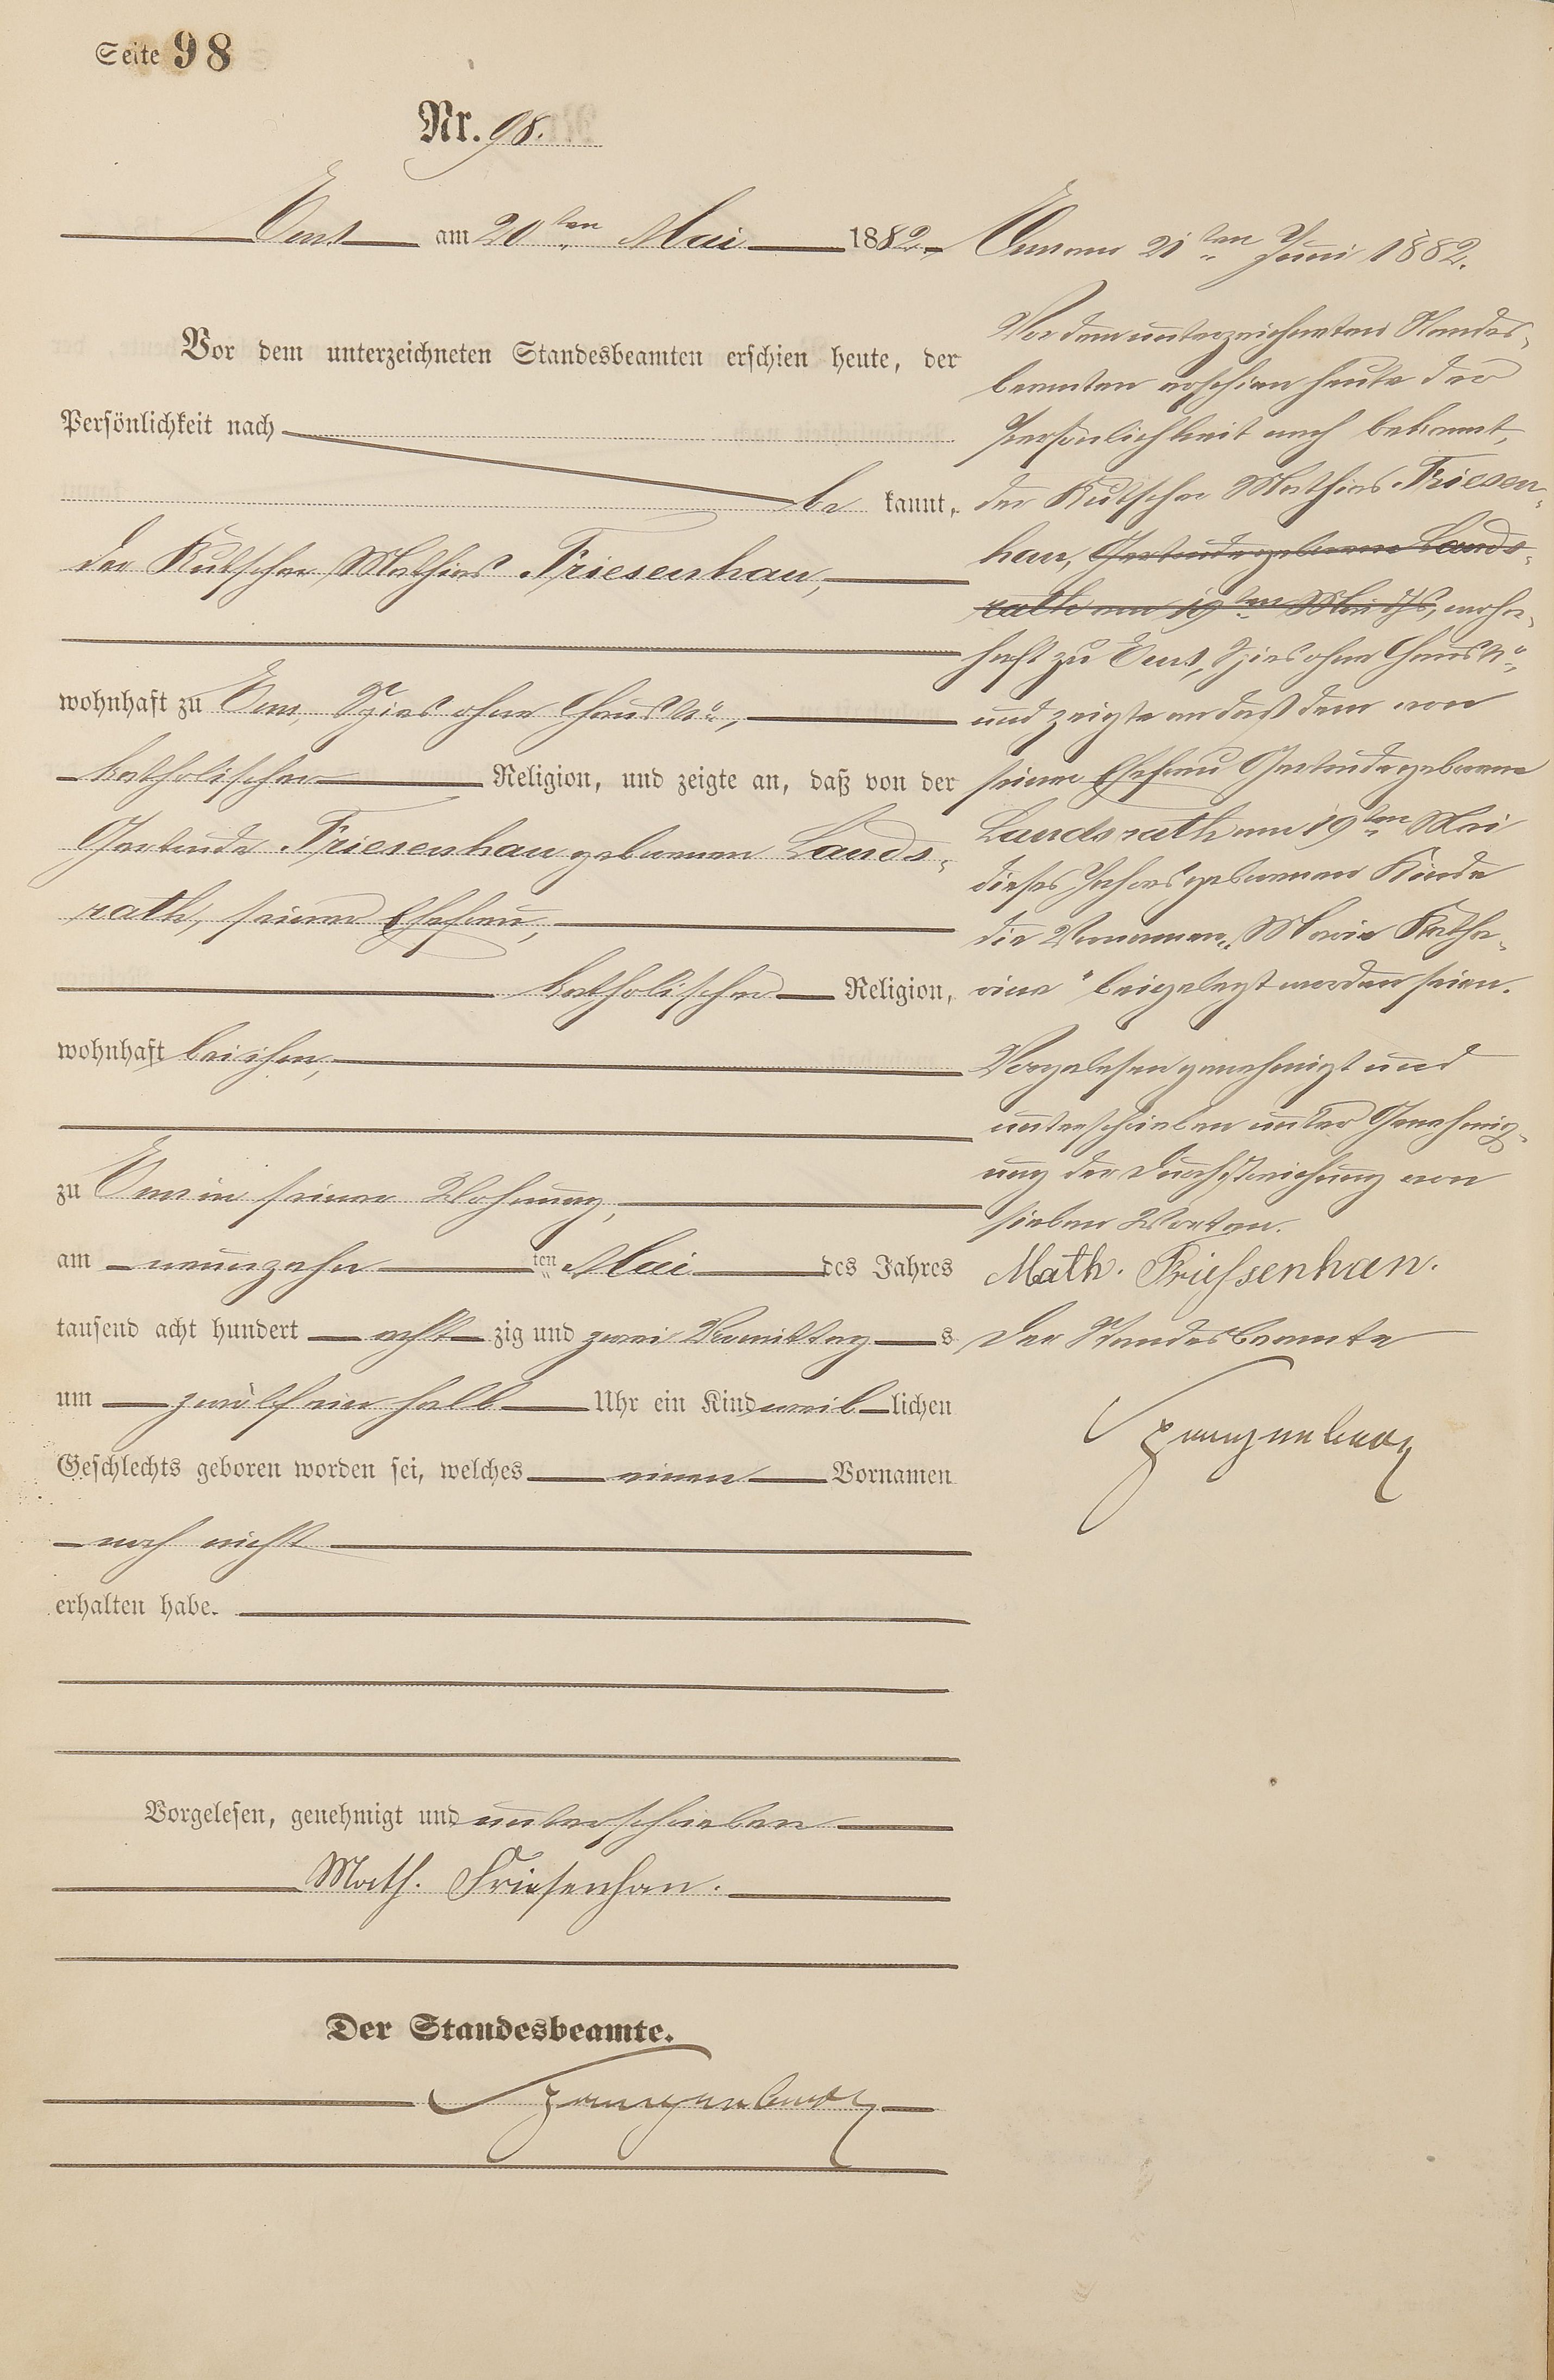 Seite 98
Nr. 98.
Ems am 20ten Mai 1882.
Vor dem unterzeichneten Standesbeamten erschien heute, der
Persönlichkeit nach
be kannt,
der Kutscher Mathias Friesenhan,
wohnhaft zu Ems, Spies ohne Haus No,
katholischer Religion, und zeigte an, daß von der
Gertrude Friesenhan geborenen Lands-
rath, seiner Ehefrau,
katholischer Religion,
wohnhaft bei ihm,
zu Ems in seiner Wohnung,
am neunzehn ten Mai des Jahres
tausend acht hundert acht zig und zwei Vormittag s
um zwölf ein halb Uhr ein Kind weib lichen
Geschlechts geboren worden sei, welches einen Vornamen
noch nicht
erhalten habe.
Vorgelesen, genehmigt und unterschrieben
Math. Friesenhan.
Der Standesbeamte.
Ems am 21ten Juni 1882.
Vor dem unterzeichneten Standes-
beamten erschien heute der
Persönlichkeit nach bekannt,
der Kutscher Mathias Friesen-
han, Gertrude geborene Lands-
rath am 19ten Mai ds Js, wohn-
haft zu Ems, Spies ohne Haus No,
und zeigte an daß dem von
seiner Ehefrau Gertrude geborene
Landsrath am 19ten Mai
dieses Jahres geborenen Kinde
die Vornamen „Maria Katha-
rina" beigelegt worden seien.
Vorgelesen genehmigt und
unterschrieben unter Genehmig-
ung der Durchstreichung von
sieben Worten.
Math. Friessenhan.
Der Standesbeamte